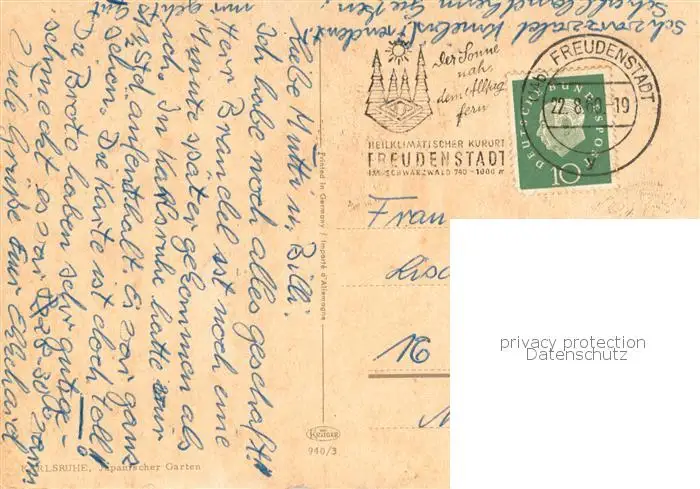 Liebe Mutti u. Billi.
Ich habe noch alles geschafft!
Herr Brandel ist noch eine
Minute später gekommen als
ich. In Karlsruhe hatte
1½ Std. aufenthalt. Es war ganz
schön. Die Karte ist doch toll!
Die Brote haben sehr gut ge-
schmeckt es war 28-30° warm.
Viele Grüße euer Ekkehard
mir geht's gut
Schwarzwald himmlisch
der Sonne
nah,
dem Alltag
fern
HEILKLIMATISCHER KURORT
FREUDENSTADT
IM SCHWARZWALD 740 - 1000 m
FREUDENSTADT
22.8.60-19
DEUTSCHE BUNDESPOST
10
Frau
16
Printed in Germany / Importé d'Allemagne
KRÜGER
940/3
KARLSRUHE, Japanischer Garten
privacy protection
Datenschutz